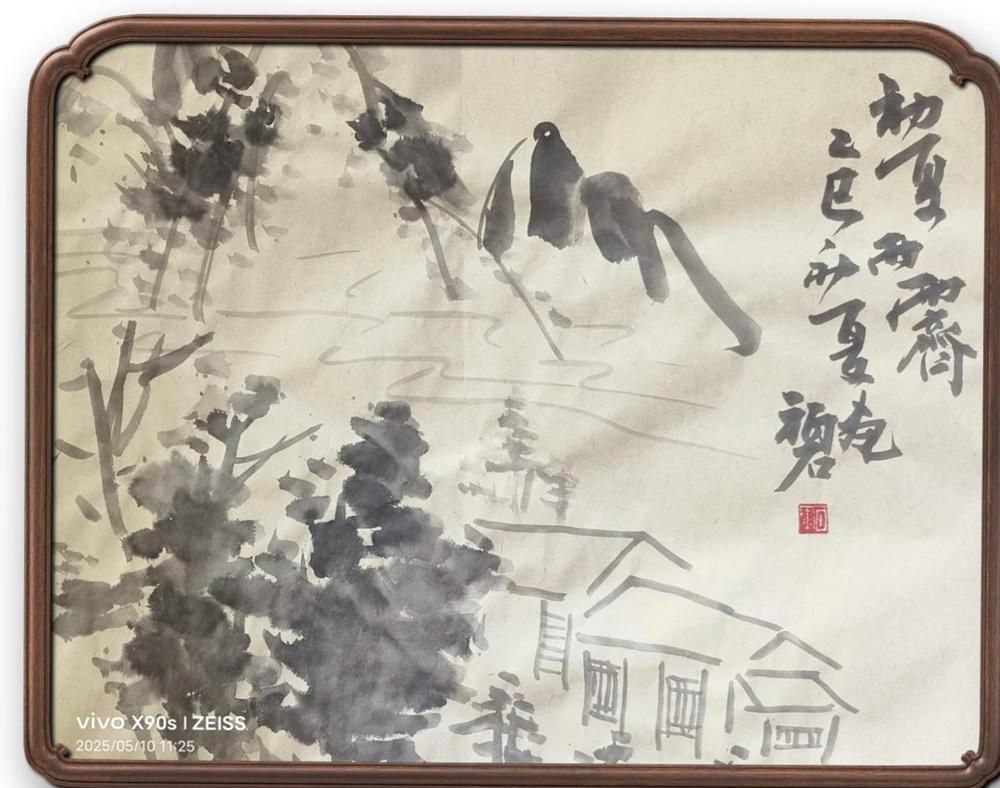 初夏雨霽
乙巳初夏
vivo X90s | ZEISS
2025/05/10 11:25